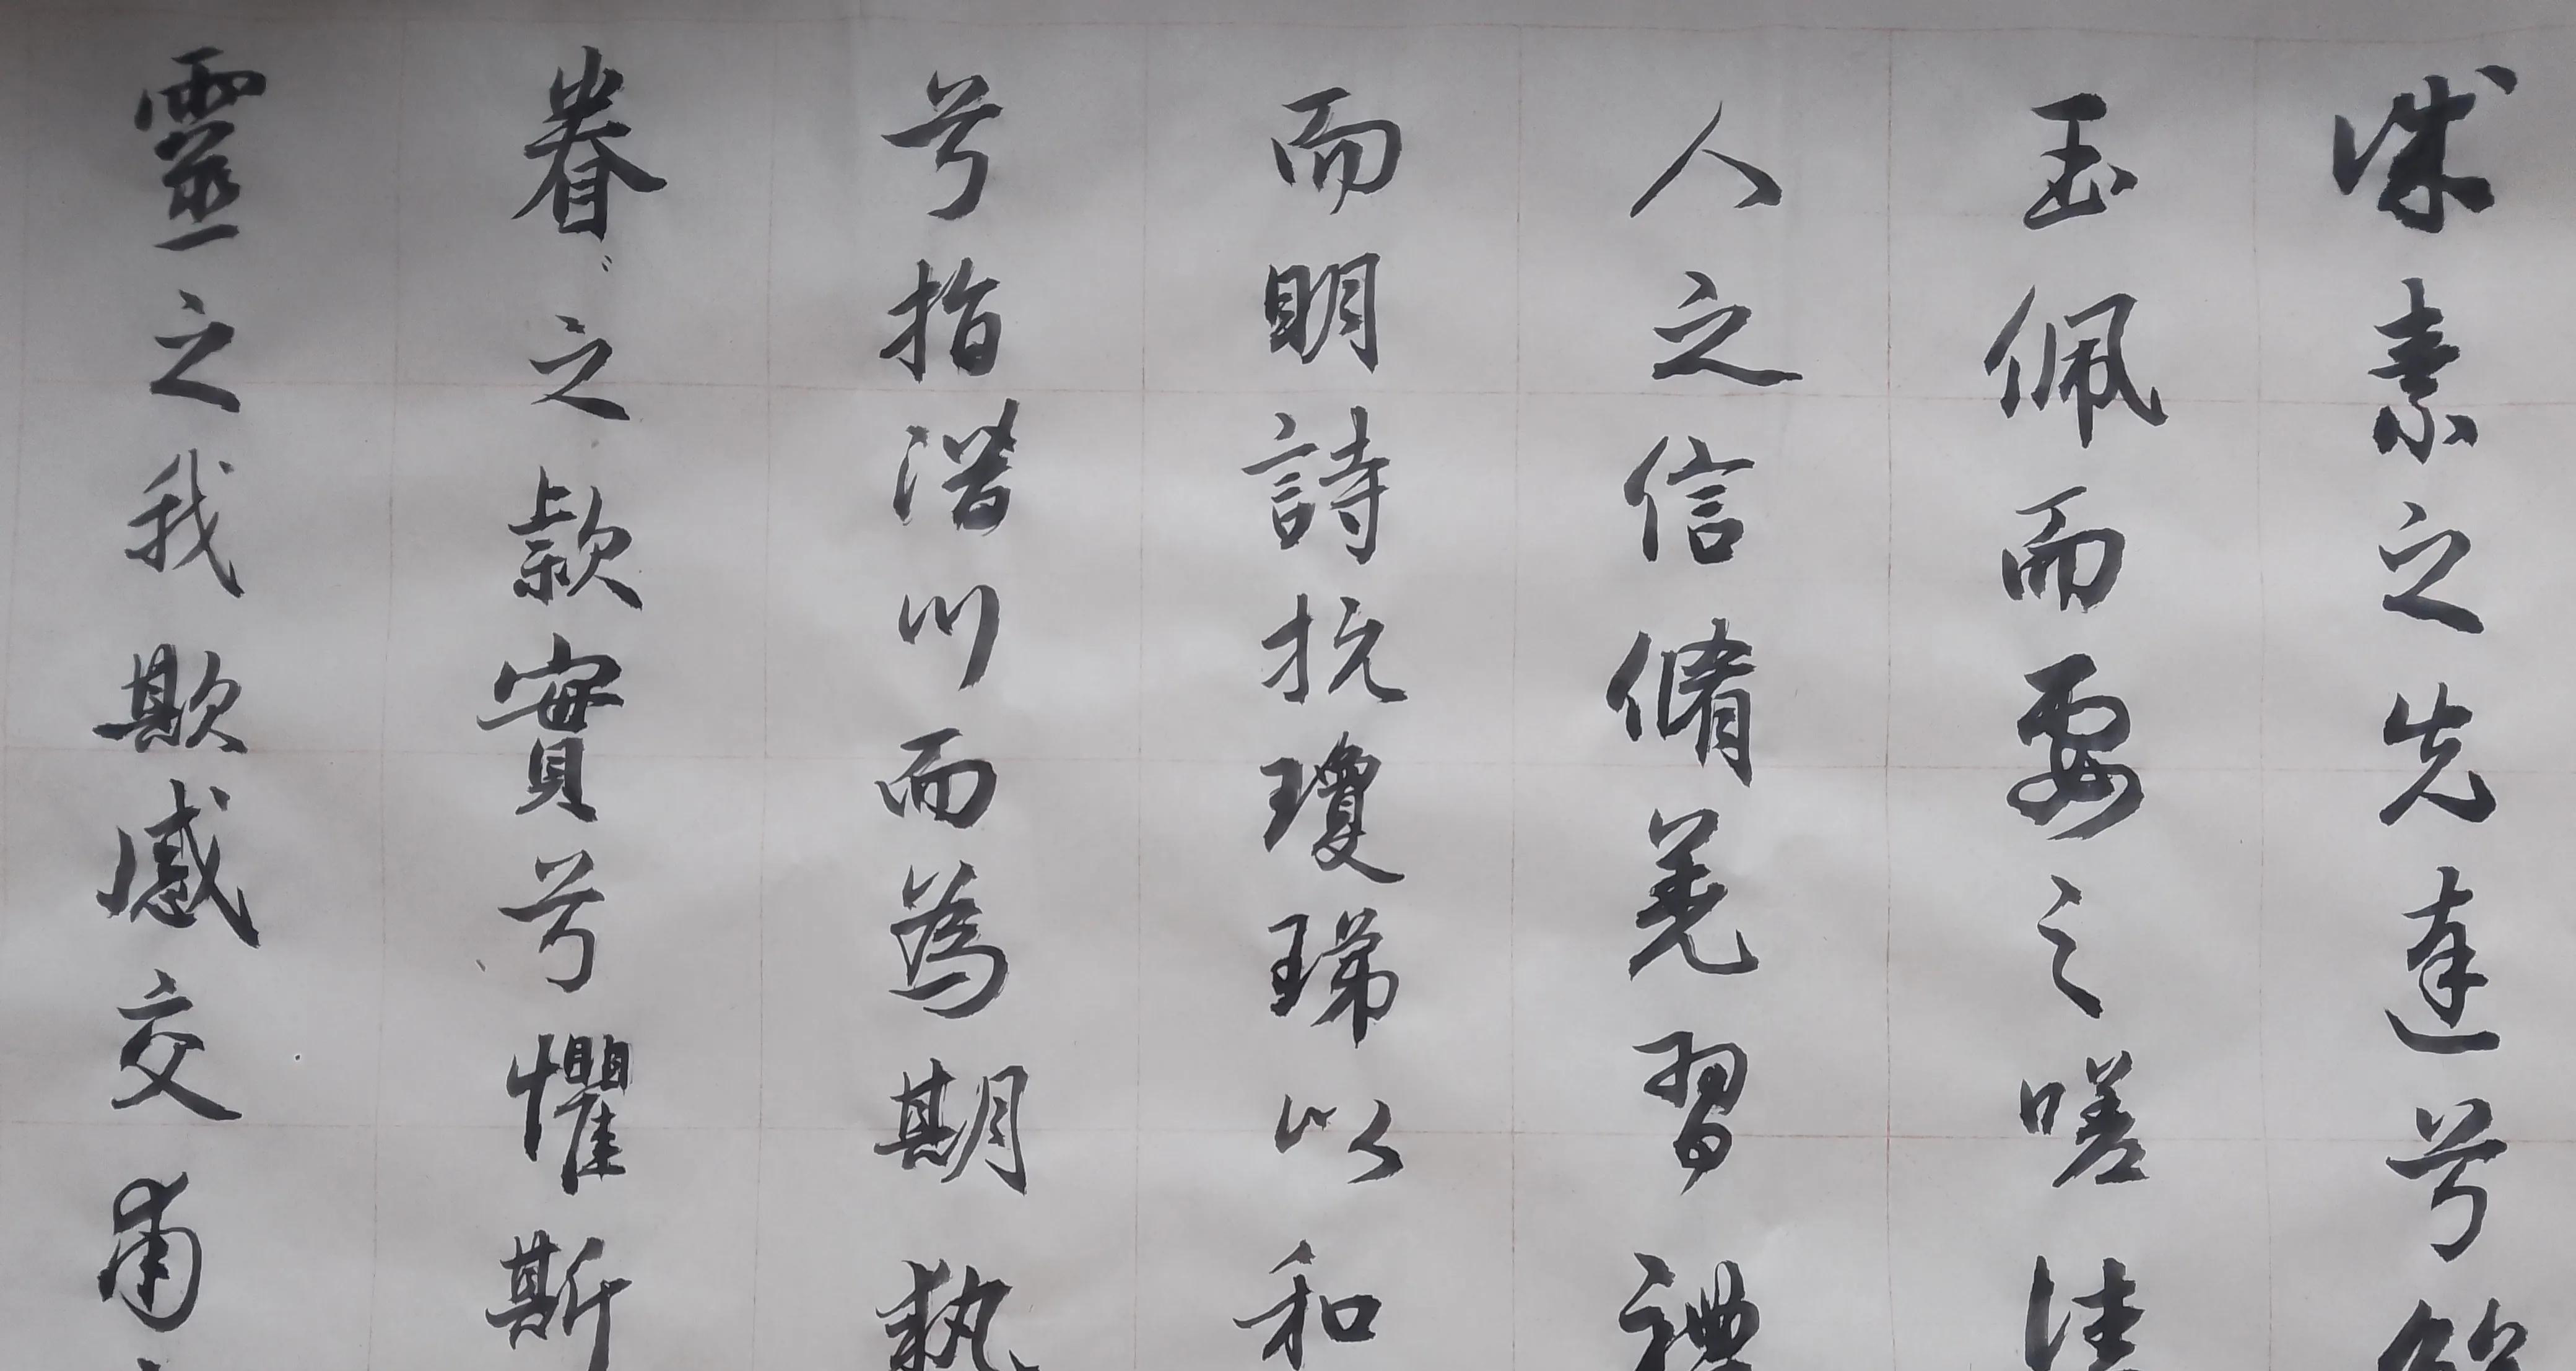 誠素之先達兮
玉佩而要之嗟佳
人之信脩羌習禮
而明詩抗瓊珶以和
兮指潛川而為期執
眷〻之款實兮懼斯
靈之我欺感交甫